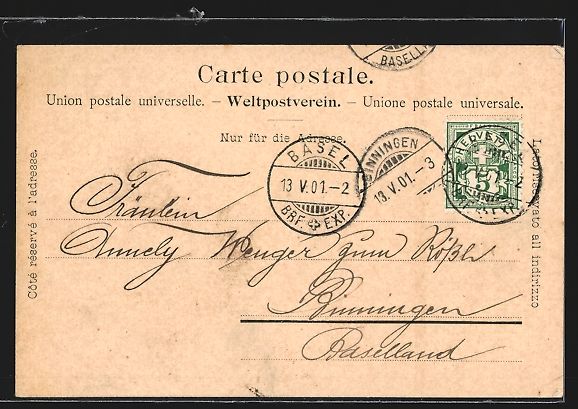 BASELL
Carte postale.
Union postale universelle. – Weltpostverein. – Unione postale universale.
Nur für die Adresse.
Côté réservé à l'adresse.
Lato riservato all indirizzo
BASEL
13 V.01.–2
BRF. EXP.
BINNINGEN
13.V.01.–3
HELVETIA
5
EXP.
Fräulein
Annely Wenger zum Rößli
Binningen
Baselland